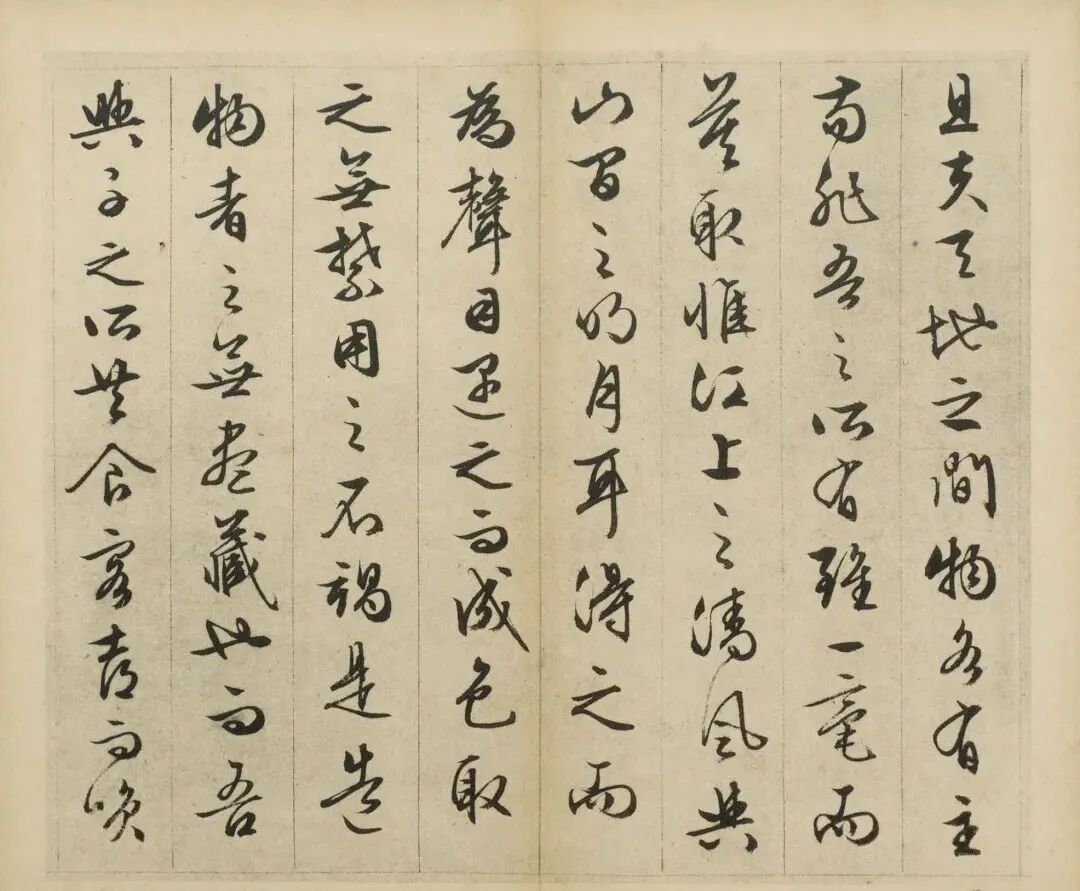 且夫天地之間物各有主
苟非吾之所有雖一毫而
莫取惟江上之清風與
山間之明月耳得之而
為聲目遇之而成色取
之無禁用之不竭是造
物者之無盡藏也而吾
與子之所共食客喜而咲